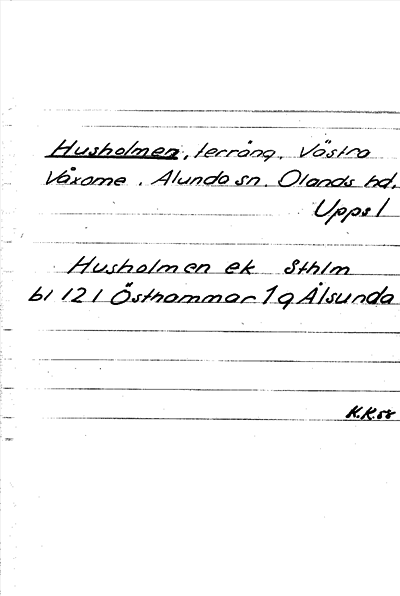 Husholmen, terräng. Västra
Våxome. Alunda sn. Olands hd.
Upps l
Husholmen ek Sthlm
bl 121 Östhammar 1q Ålsunda
K.K. 58